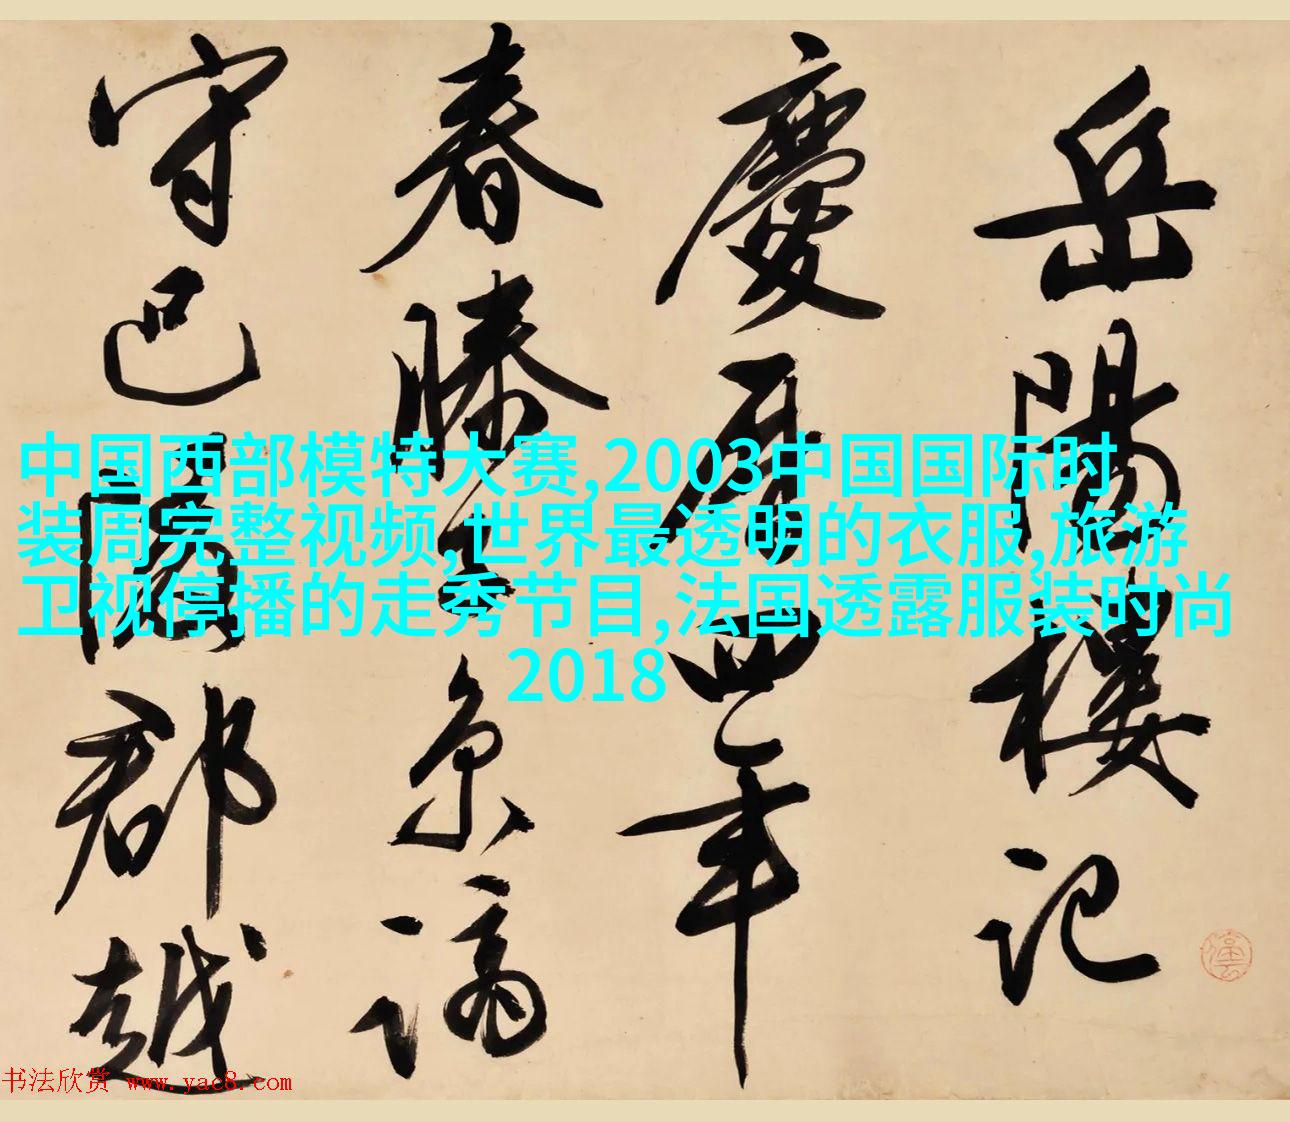 岳陽樓記
慶曆四年
春滕子京謫
守巴陵郡越
中国西部模特大赛,2003中国国际时
装周完整视频,世界最透明的衣服,旅游
卫视停播的走秀节目,法国透露服装时尚
2018
书法欣赏 www.yac8.com